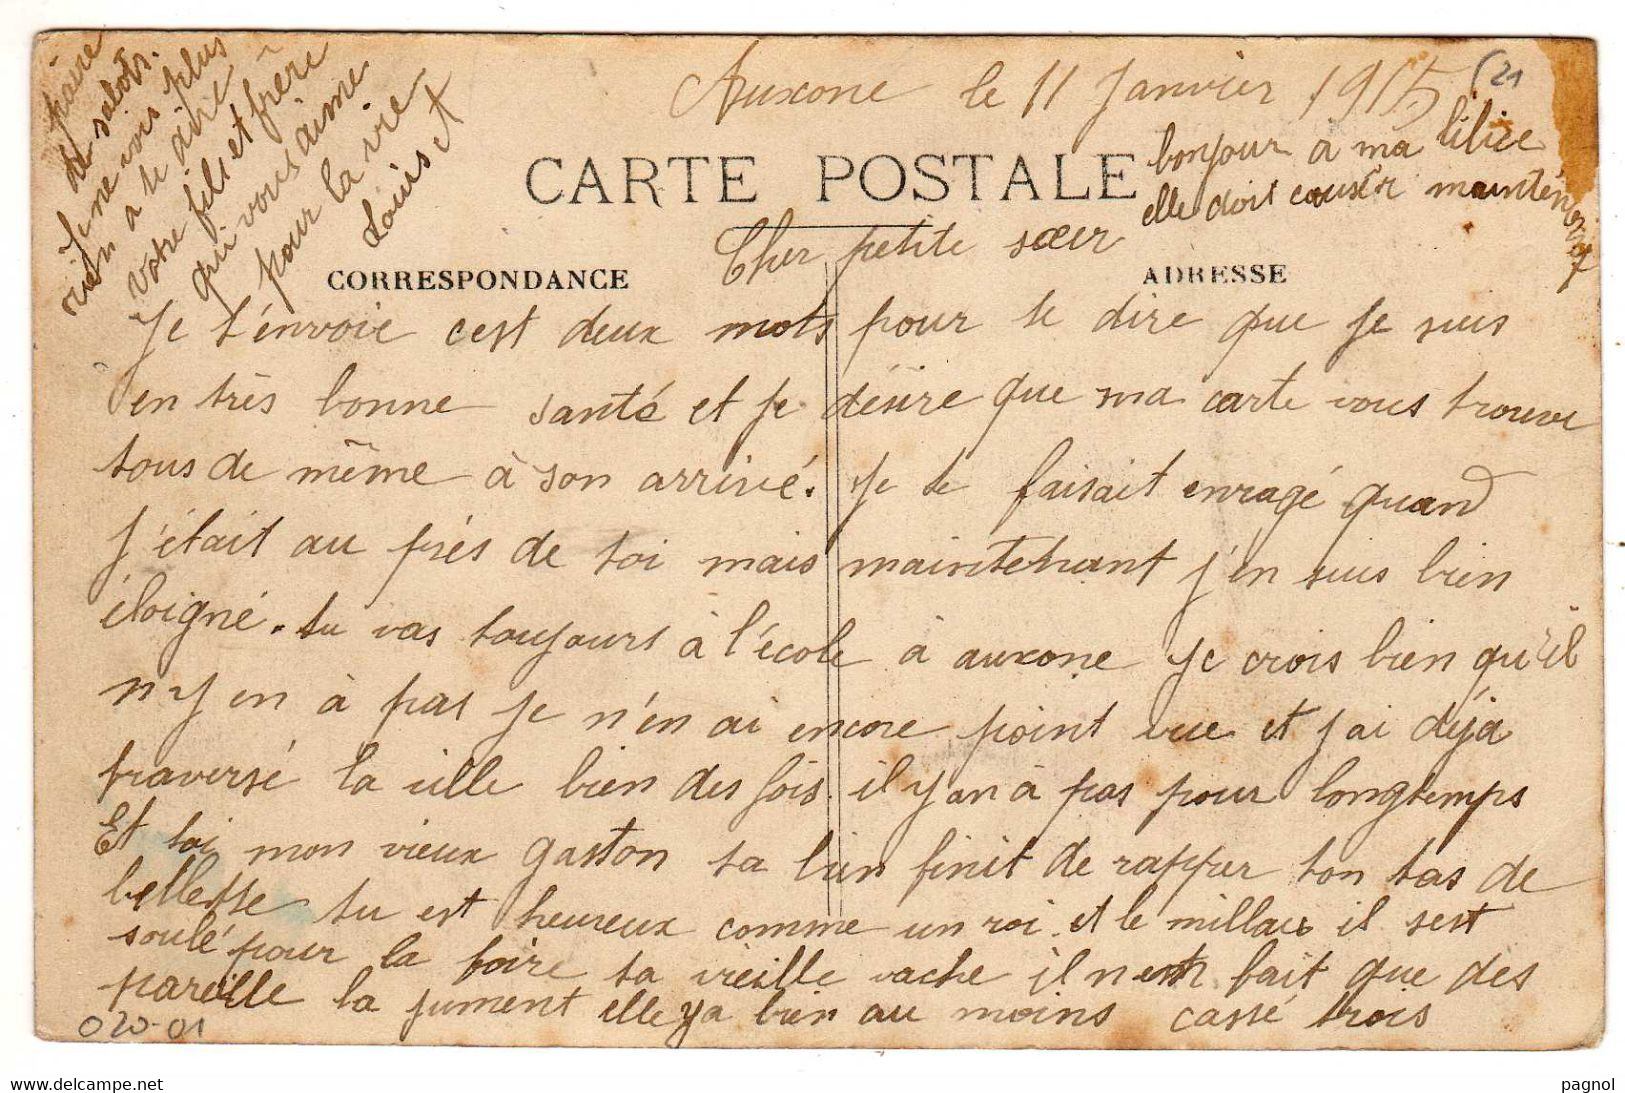 Auxonne le 11 Janvier 1915
(21
CARTE POSTALE
bonjour à ma lilice
elle doit causér maintenent
Cher petite sœur
CORRESPONDANCE
ADRESSE
Je t'envoie cest deux mots pour te dire que je suis
en très bonne santé et je désire que ma carte vous trouve
tous de même à son arrivé. Je te faisait enragé quand
j'était au près de toi mais maintenant j'en suis bien
éloigné. tu vas toujours à l'école à auxone je crois bien qu'il
n'y en à pas je n'en ai encore point vue et j'ai déja
traversé la ville bien des fois. il y an à pas pour longtemps
Et toi mon vieux gaston ta bien finit de rapper ton tas de
bellesse tu est heureux comme un roi. et le millau il sest
soulé pour la foire ta vieille vache il n'en fait que des
pareille la jument elle ya bien au moins cassé trois
paire
de sabots.
Je ne vois plus
rien a te dire
votre fils et frère
qui vous aime
pour la vie
Louis
020-01
www.delcampe.net
pagnol